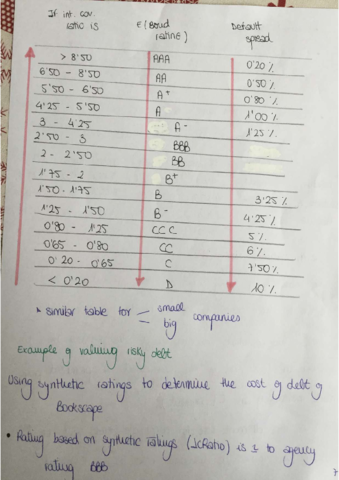 If int. cov. ratio is E(Bond rating) Default spread
> 8'50 AAA 0'20%
6'50 - 8'50 AA 0'50%
5'50 - 6'50 A+ 0'80%
4'25 - 5'50 A 1'00%
3 - 4'25 A- 1'25%
2'50 - 3 BBB
2 - 2'50 BB
1'75 - 2 B+
1'50 - 1'75 B 3'25%
1'25 - 1'50 B- 4'25%
0'80 - 1'25 CCC 5%
0'65 - 0'80 CC 6%
0'20 - 0'65 C 7'50%
< 0'20 D 10%
similar table for small
big companies
Example of valuing risky debt
Using synthetic ratings to determine the cost of debt of
Bookscape
• Rating based on synthetic ratings (ICRatio) is to agency
rating BBB
7